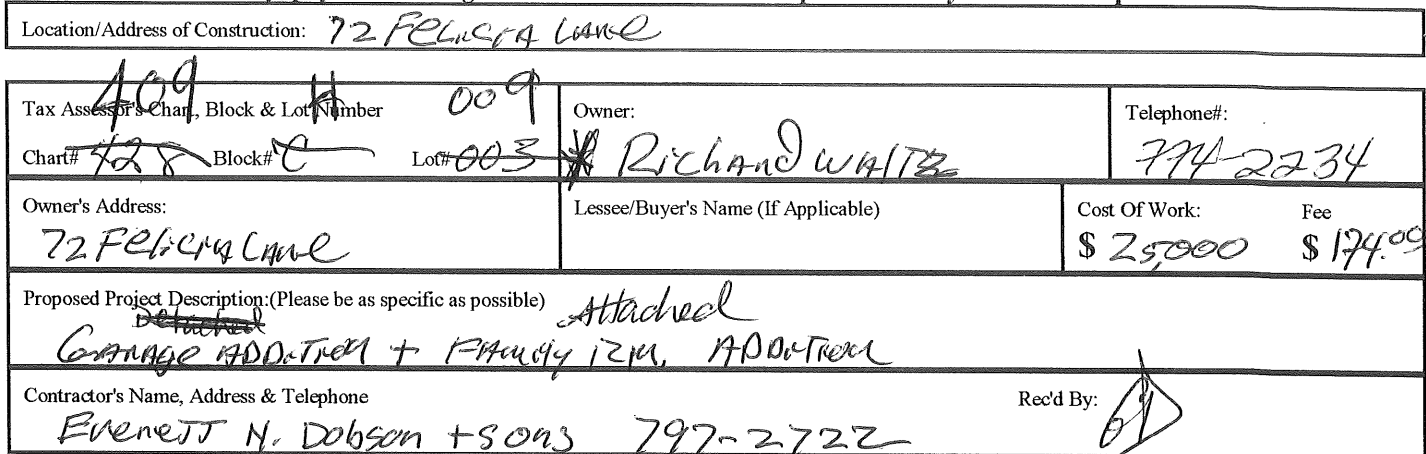 Location/Address of Construction: 72 Felicia Lane
409 H 009
Tax Assessor's Chart, Block & Lot Number
Chart# 428 Block# C Lot# 003
Owner:
Richard Waltz
Telephone#:
774-2234
Owner's Address:
72 Felicia Lane
Lessee/Buyer's Name (If Applicable)
Cost Of Work:
$ 25,000
Fee
$ 174.00
Proposed Project Description:(Please be as specific as possible)
Detached Attached
Garage Addition + Family Rm. Addition
Contractor's Name, Address & Telephone
Everett N. Dobson + Sons 797-2722
Rec'd By: